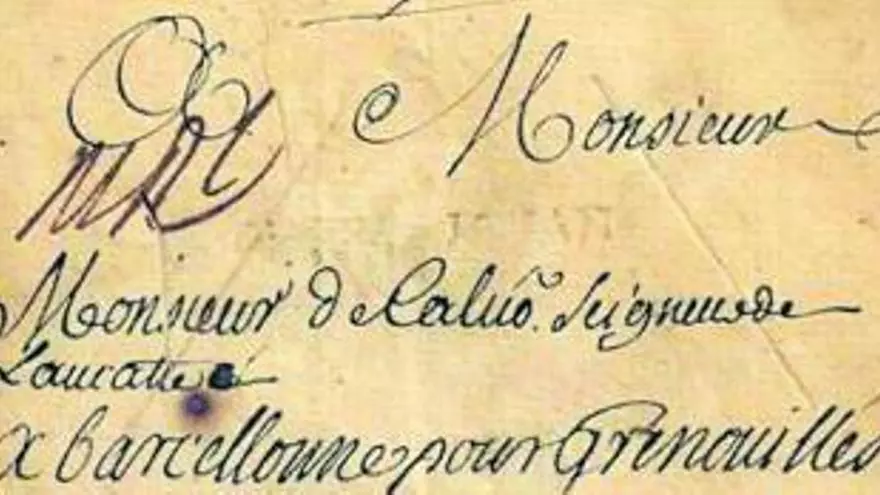 Monsieur
Monsieur de Calvo. Seigneur de
Lamatte
a barcellonne pour Grinouilles